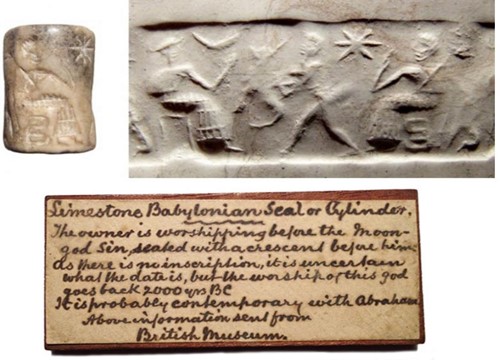 Limestone Babylonian Seal or Cylinder.
The owner is worshipping before the Moon-
god Sin, seated with a crescent before him
as there is no inscription, it is uncertain
what the date is, but the worship of this god
goes back 2000 yrs BC
It is probably contemporary with Abraham
Above information sent from
British Museum.